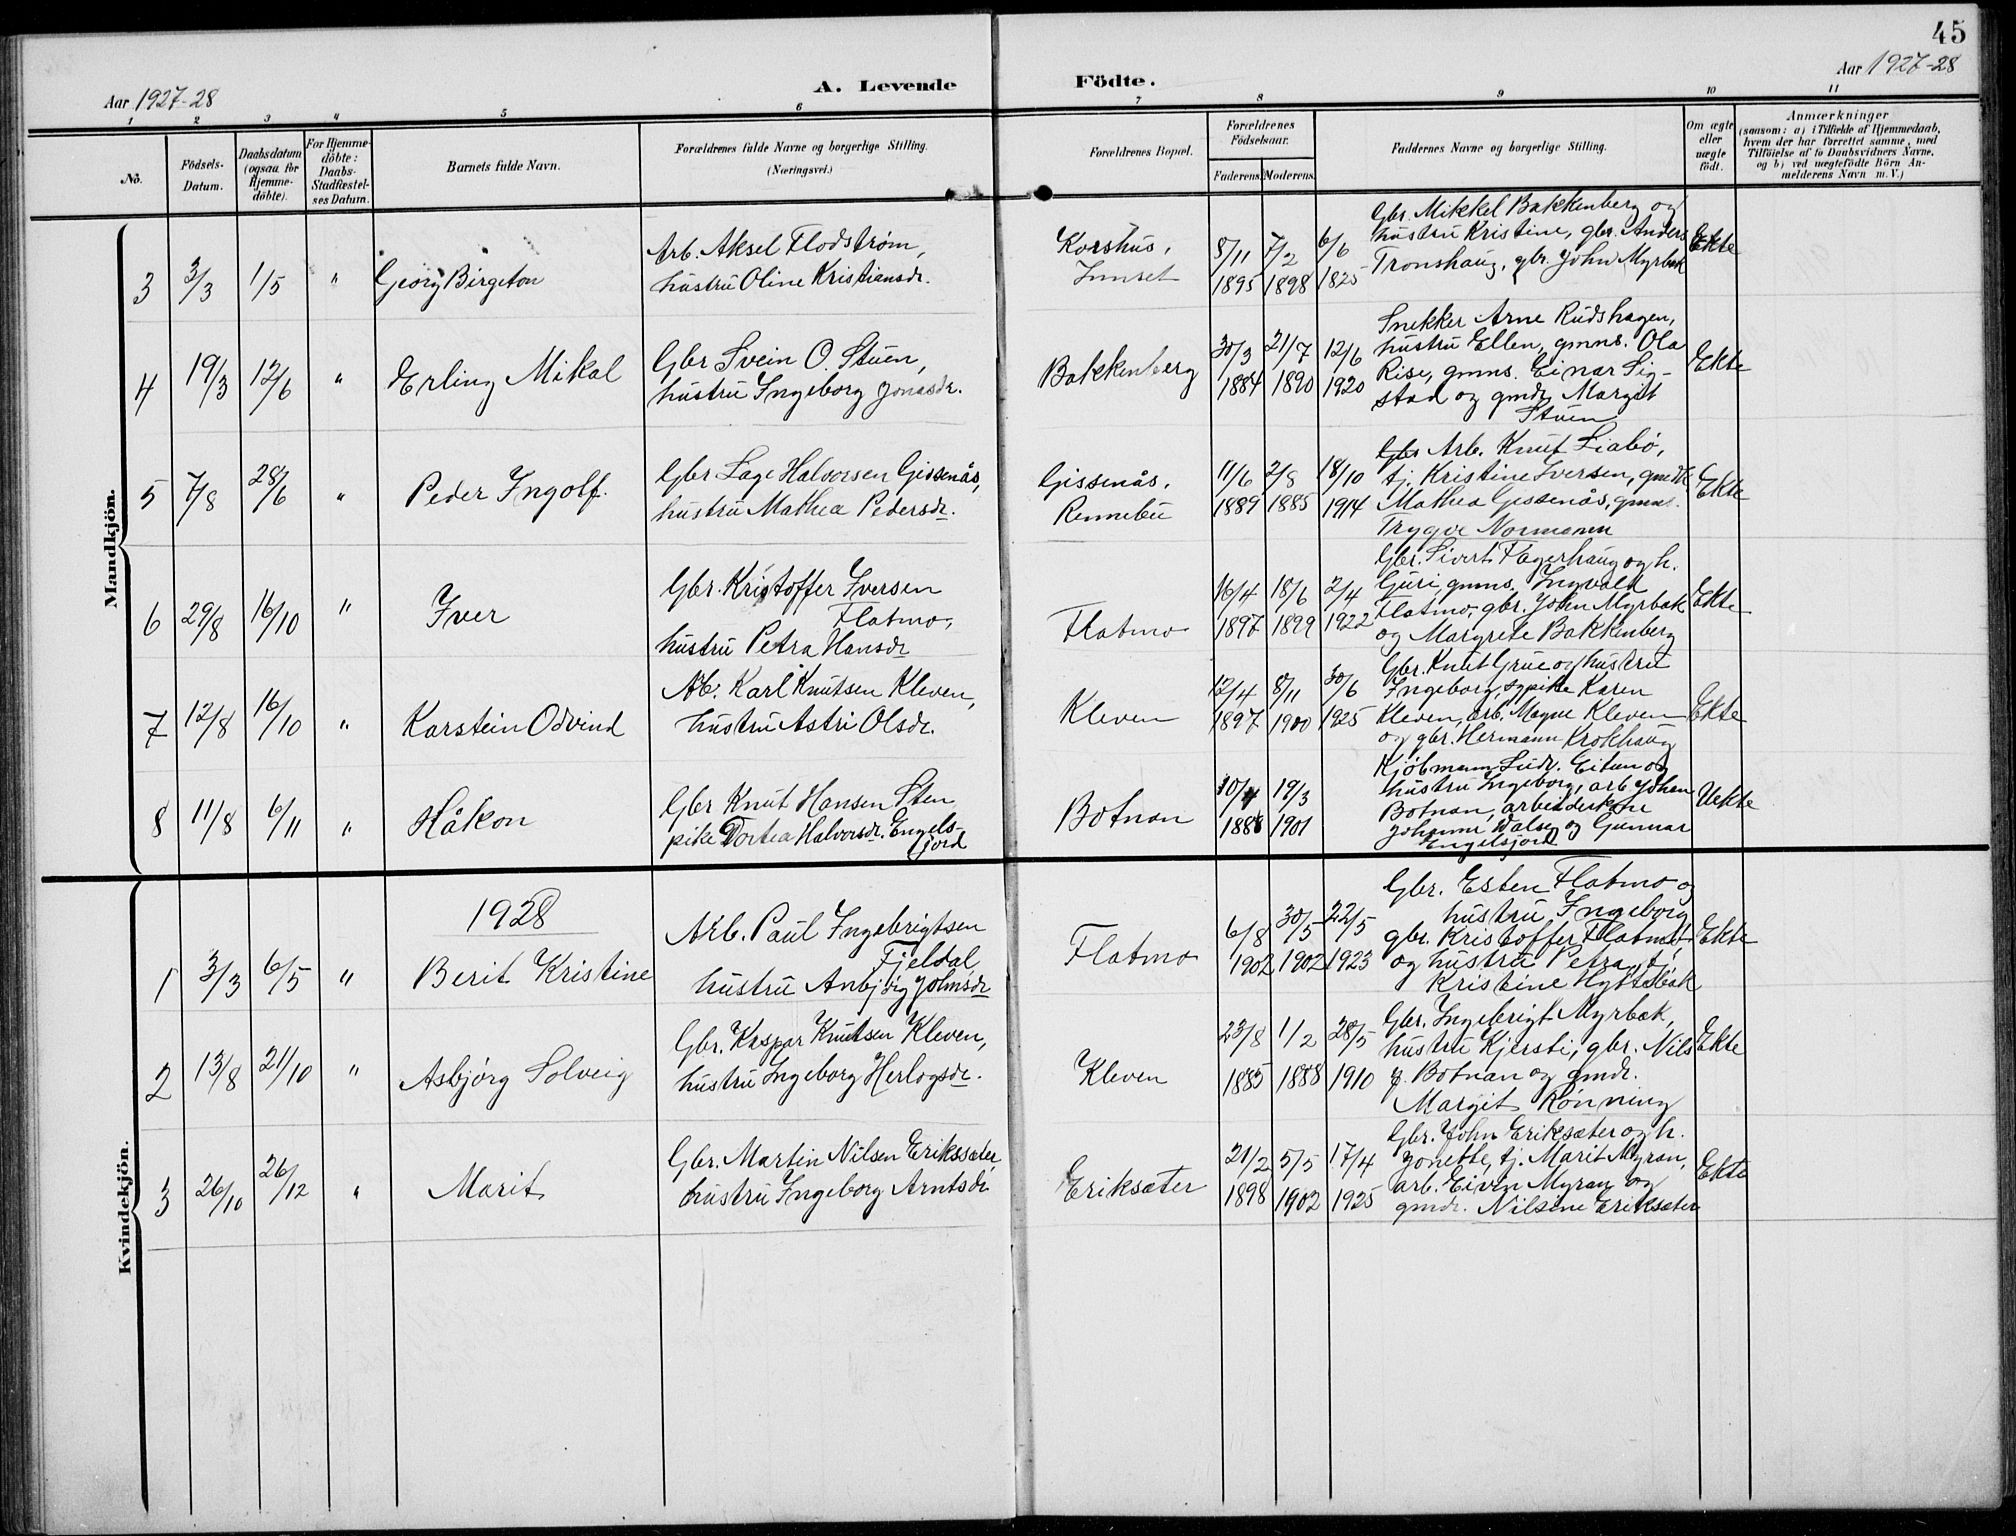 45
Aar 1927-28
A. Levende Födte.
Aar 1927-28
1 2 3 4 5 6 7 8 9 10 11
No.
Födsels-Datum.
Daabsdatum (ogsaa for Hjemmedöbte).
For Hjemmedöbte: Daabs-Stadfæstelses Datum.
Barnets fulde Navn.
Forældrenes fulde Navne og borgerlige Stilling.
(Næringsvei.)
Forældrenes Bopæl.
Forældrenes Födselsaar.
Faderens. Moderens.
Faddernes Navne og borgerlige Stilling.
Om ægte eller uægte födt.
Anmærkninger
(saasom: a) i Tilfælde af Hjemmedaab,
hvem der har forrettet samme, med
Tilföielse af to Daabsvidners Navne,
og b) ved uægtefödte Börn An-
melderens Navn m. V.)
Mandkjön.
3 3/3 1/5 " Georg Birgeton
Arb. Aksel Flodstrøm,
hustru Oline Kristiansdr.
Korshus,
Innset
8/11 1895 7/2 1898 6/6 1825
Gbr. Mikkel Bakkenberg og
hustru Kristine, gbr. Anders
Tronshaug, gbr. John Myrbak
Ekte
4 19/3 12/6 " Erling Mikal
Gbr Svein O. Stuen,
hustru Ingeborg Jonasdr.
Bakkenberg
30/3 1884 21/7 1890 12/6 1920
Snekker Arne Rudshagen,
hustru Ellen, gmns. Ola
Rise, gmns. Einar Sig-
stad og gmdr. Margit
Stuen
Ekte
5 7/8 28/6 " Peder Ingolf.
Gbr Lage Halvorsen Gissenås,
hustru Mathea Pedersdr.
Gissenås,
Rennebu
11/6 1889 2/8 1885 18/10 1914
Gbr Arb. Knut Liabö,
tj. Kristine Iversen, gmdr.
Mathea Gissenås, gmns.
Trygve Normann
Ekte
6 29/8 16/10 " Iver
Gbr. Kristoffer Iversen
Flatmo,
hustru Petra Hansdr
Flatmo
16/4 1897 18/6 1899 2/4 1922
Gbr. Sivert Fagerhaug og h.
Guri, gmns. Ingvald
Flatmo, gbr. John Myrbak
og Margrete Bakkenberg
Ekte
7 12/8 16/10 " Karstein Odvind
Arb. Karl Knutsen Kleven,
hustru Astri Olsdr.
Kleven
12/4 1897 8/11 1900 30/6 1925
Gbr. Knut Grue og hustru
Ingeborg, sypike Karen
Kleven, arb. Magne Kleven
og gbr. Hermann Krokhaug
Ekte
8 11/8 6/11 " Håkon
Gbr Knut Hansen Sten
pike Dortea Halvorsdr. Engels-
fjord
Botnan
10/4 1888 19/3 1901
Kjöbmann Ludv. Eitun og
hustru Ingeborg, arb Johan
Botnan, arbeiderkone
Johanne Walsø og Gunnar
Engelsfjord
Uekte
Kvindekjön.
1928
1 3/3 6/5 " Berit Kristine
Arb. Paul Ingebrigtsen
Fjeldal,
hustru Anbjørg Johnsdr
Flatmo
6/8 1902 30/5 1902 22/5 1923
Gbr. Esten Flatmo og
hustru Ingeborg,
gbr. Kristoffer Flatmo
og hustru Petra, tj.
Kristine Hyttebak
Ekte
2 13/8 21/10 " Asbjørg Solveig
Gbr. Kaspar Knutsen Kleven,
hustru Ingeborg Herlogsdr.
Kleven
23/8 1885 1/2 1888 28/5 1910
Gbr. Ingebrigt Myrbak,
hustru Kjersti, gbr. Nils
J. Botnan og gmdr.
Margit Rønning
Ekte
3 26/10 26/12 " Marit
Gbr. Martin Nilsen Eriksæter
hustru Ingeborg Arntsdr
Eriksæter
21/2 1898 5/5 1902 17/4 1925
Gbr. John Eriksæter og h.
Jonette, tj. Marit Myran,
arb. Eiven Myran og
gmdr. Nilsine Eriksæter
Ekte